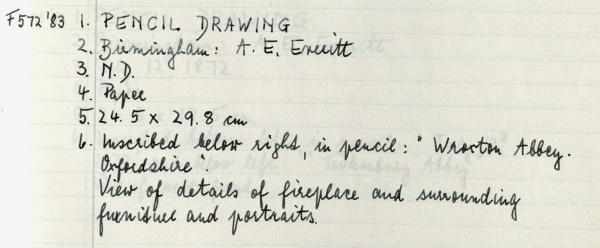 F572'83 1. PENCIL DRAWING
2. Birmingham: A. E. Everitt
3. N.D.
4. Paper
5. 24.5 x 29.8 cm
6. Inscribed below right, in pencil: "Wroxton Abbey.
Oxfordshire".
View of details of fireplace and surrounding
furniture and portraits.